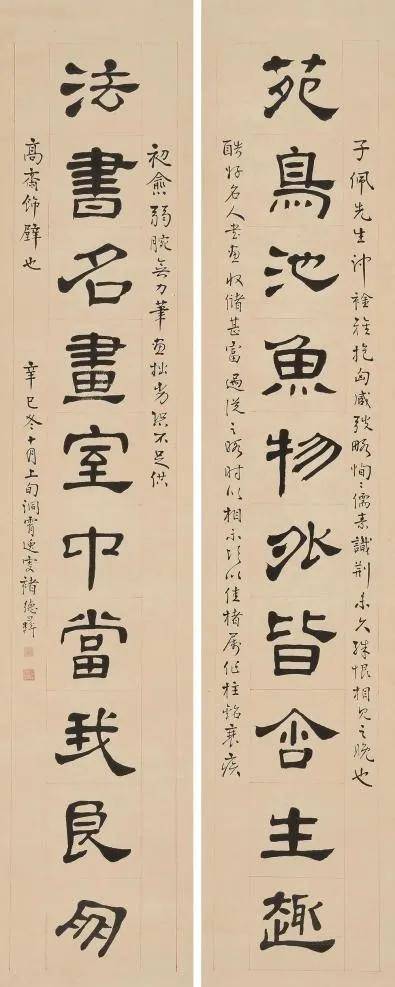 子佩先生沖襟雅抱恂々儒素識荊未久殊恨相見之晚也
苑鳥池魚物外皆含生趣
酷好名人書畫收儲甚富過從之暇時以相示頃以佳楮屬作柱銘衰疾
初愈弱腕無力筆畫拙劣不足供
法書名畫室中當我良朋
高齋飾壁也 辛巳冬十月上旬洞霄逸叟褚德彝